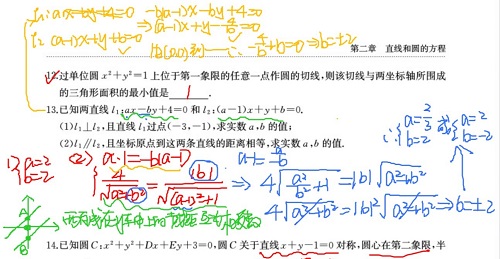 -b(a-1)x-by+4=0
l₂ (a-1)x+y+b=0
⇒(a-1)x+y-4/b=0
-4/b+b=0⇒b=±2
第二章 直线和圆的方程
12.过单位圆 x²+y²=1 上位于第一象限的任意一点作圆的切线,则该切线与两坐标轴所围成
的三角形面积的最小值是 1 .
13.已知两直线 l₁:ax-by+4=0 和 l₂:(a-1)x+y+b=0.
(1)l₁⊥l₂,且直线 l₁过点(-3,-1),求实数 a,b 的值;
(2)l₁∥l₂,且坐标原点到这两条直线的距离相等,求实数 a,b 的值.
∴{a=2/3 b=2 或{a=2 b=-2
1) a=2 b=2
(2) a·1=-b(a-1)
4/√(a²+b²)=|b|/√((a-1)²+1)
⇒ 4√(a²/b²+1)=|b|√(a²+b²)
4√(a²+b²)=|b|²√(a²+b²)⇒b=±2
A
B
14.已知圆 C:x²+y²+Dx+Ey+3=0,圆 C 关于直线x+y-1=0 对称,圆心在第二象限,半